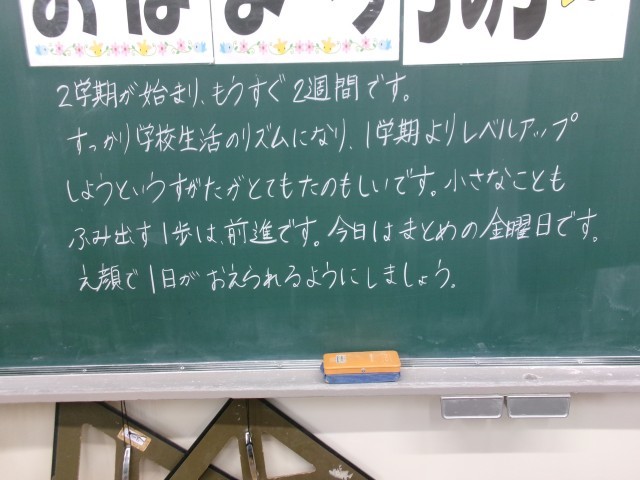 2学期が始まり、もうすぐ2週間です。
すっかり学校生活のリズムになり、1学期よりレベルアップ
しようというすがたがとてもたのもしいです。小さなことも
ふみ出す1歩は、前進です。今日はまとめの金曜日です。
え顔で1日がおえられるようにしましょう。